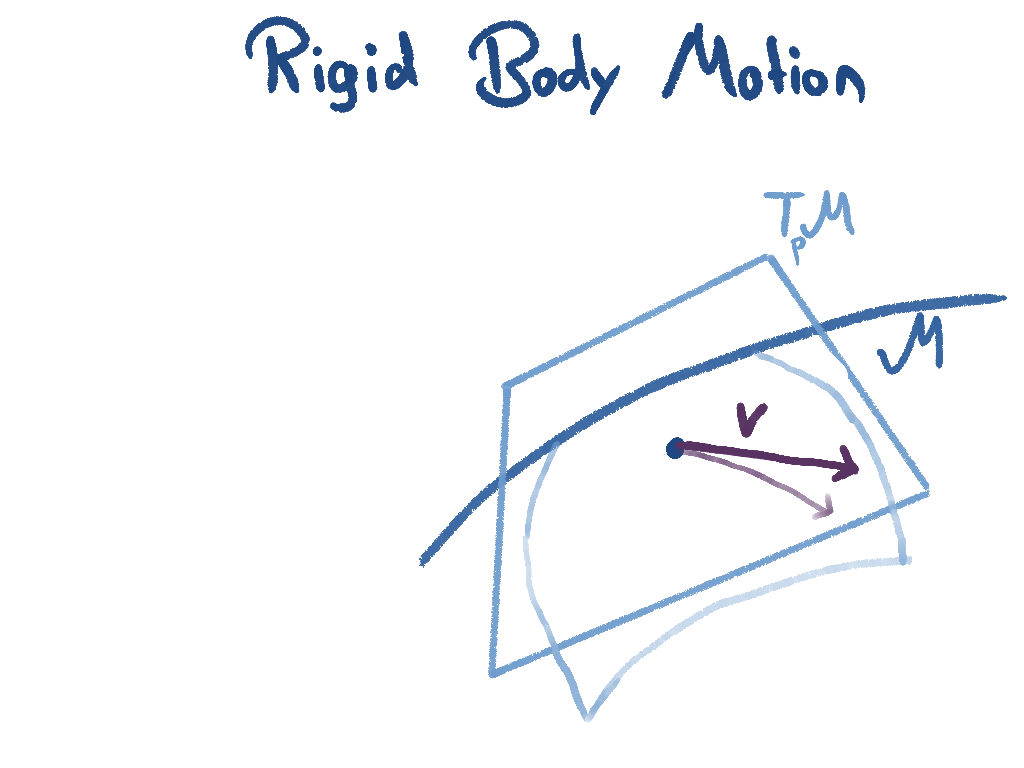 Rigid Body Motion
TpM
M
v